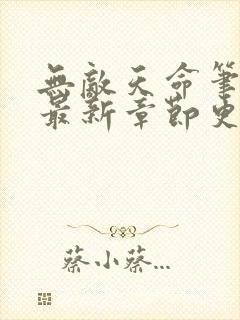 無敵天命筆
最新章節更
蔡小蔡...